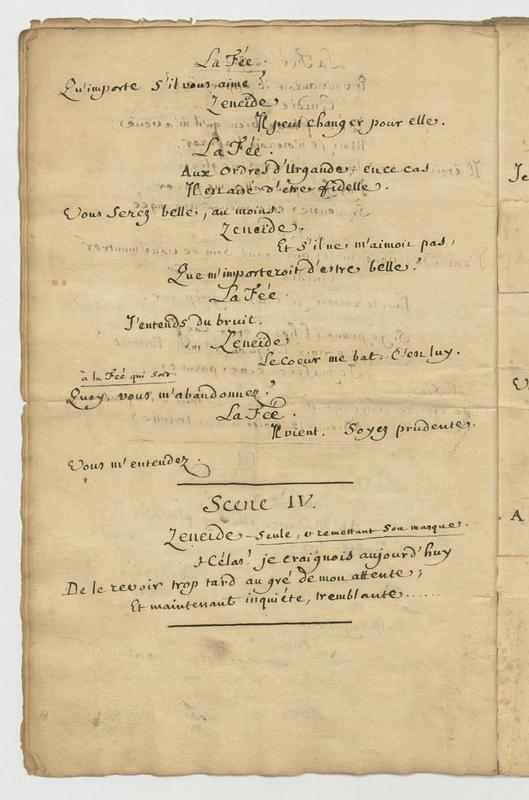 La Fée.
Qu'importe s'il vous aime?
Zeneïde
Il peut changer pour elle.
La Fée.
Aux ordres d'Urgande, en ce cas
Il est aisé d'être fidelle.
Vous serez belle, au moins.
Zeneïde.
Et s'il ne m'aimoit pas,
Que m'importeroit d'estre belle?
La Fée.
J'entends du bruit.
Zeneïde
Le Coeur me bat. C'est luy.
à la Fée qui sort
Quoy, vous m'abandonnez?
La Fée.
Il vient. Soyez prudente.
Vous m'entendez.
Scene IV.
Zeneïde seule, et remettant son masque.
Hélas! je craignois aujourd'huy
De le revoir trop tard au gré de mon attente;
Et maintenant inquiéte, tremblante......
Je
A